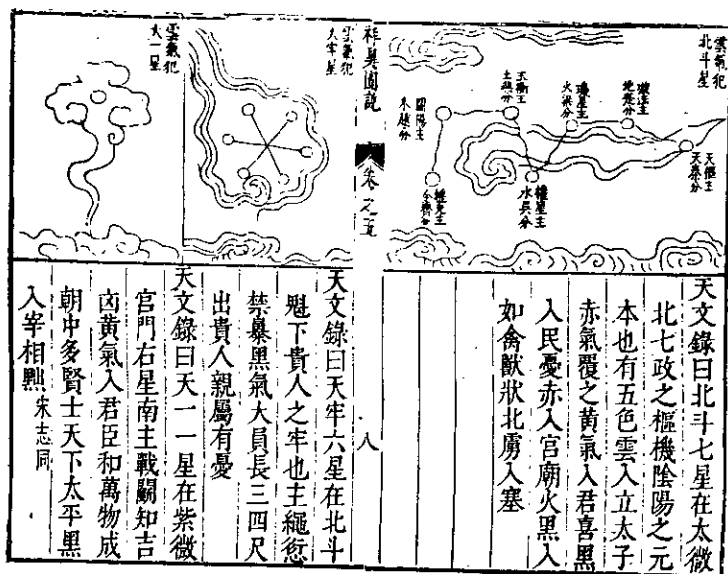 雲氣犯
北斗星
天樞主
天秦分
地楚分
璣星主
火梁分
權星主
水吳分
玉衡主
土燕分
闓陽主
木趙分
金齊分
天文錄曰北斗七星在太微
北七政之樞機陰陽之元
本也有五色雲入立太子
赤氣覆之黃氣入君喜黑
入民憂赤入宮廟火黑入
如禽獸狀北虜入塞
祥異圖說
卷之五
八
雲氣犯
天牢星
天文錄曰天牢六星在北斗
魁下貴人之牢也主繩愆
禁暴黑氣大員長三四尺
出貴人親屬有憂
雲氣犯
天一星
天文錄曰天一一星在紫微
宮門右星南主戰鬬知吉
凶黃氣入君臣和萬物成
朝中多賢士天下太平黑
入宰相黜宋志同